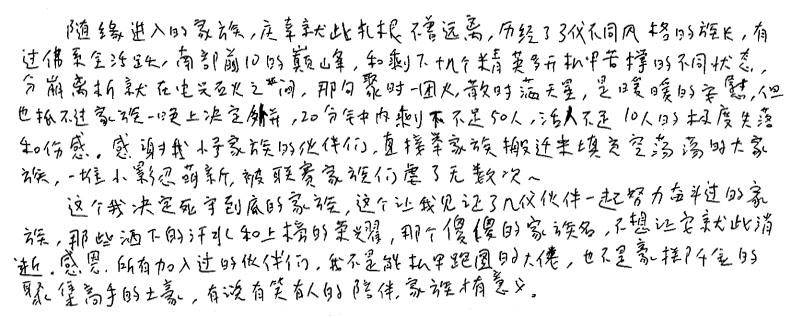 随缘进入的家族，庆幸就此扎根不曾远离，历经了3代不同风格的族长，有
过佛系全活跃，南部前10的巅峰，和剩下十几个精英多开机甲苦撑的不同状态，
分崩离析就在电光石火之间，那句聚时一团火，散时满天星，是暖暖的安慰，但
也抵不过家族一晚上决定合并，20分钟内剩下不足50人，活人不足10人的极度失落
和伤感。感谢我小子家族的伙伴们，直接举家族搬迁来填充空荡荡的大家
族，一堆小影忍萌新，被联赛家族们虐了无数次～
这个我决定死守到底的家族，这个让我见证了几代伙伴一起努力奋斗过的家
族，那些洒下的汗水和上榜的荣耀，那个傻傻的家族名，不想让它就此消
逝。感恩所有加入过的伙伴们，我不是能机甲跑图的大佬，也不是豪掷千金的
聚集高手的土豪，有说有笑有人的陪伴，家族才有意义。